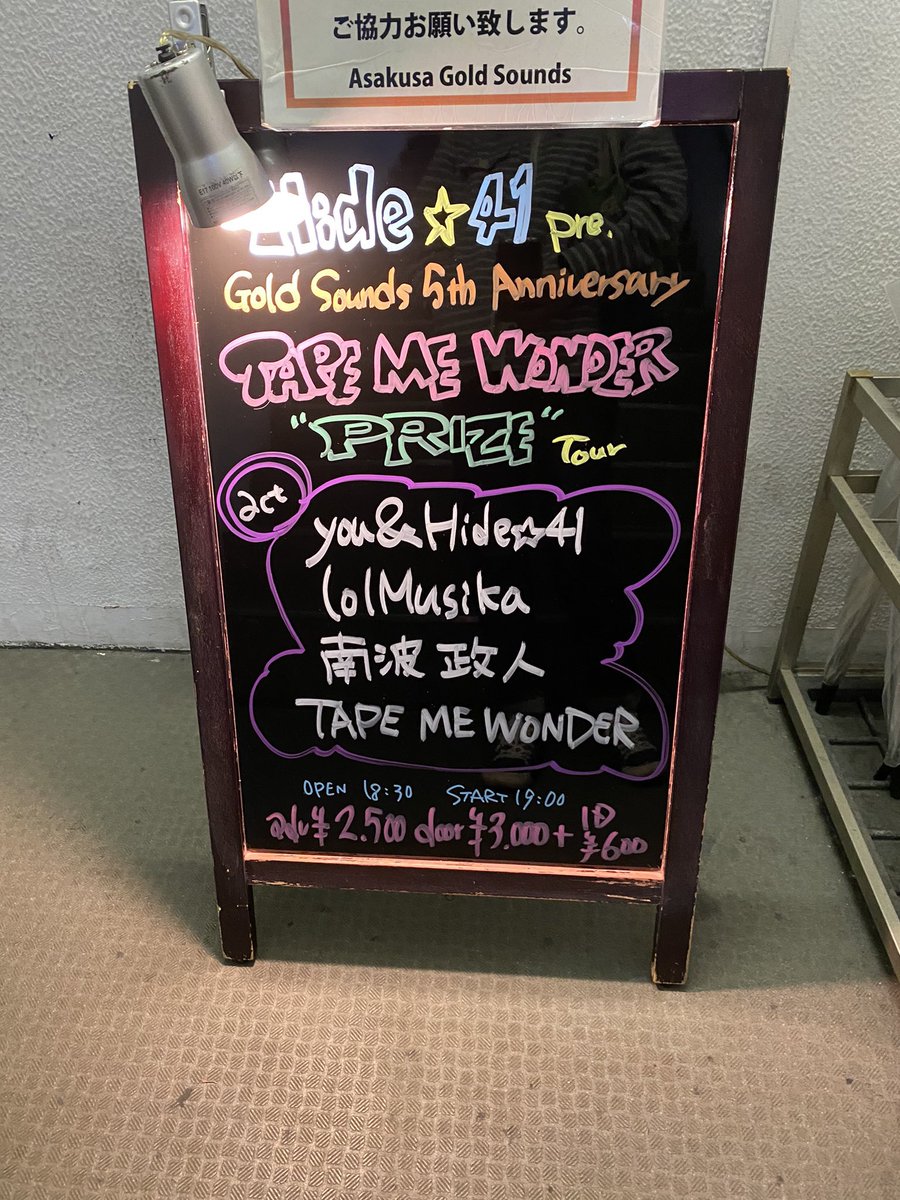 ご協力お願い致します。
Asakusa Gold Sounds
Hide☆41 pre.
Gold Sounds 5th Anniversary
TAPE ME WONDER
"PRIZE" Tour
act
you&Hide☆41
lolMusika
南波政人
TAPE ME WONDER
OPEN 18:30 START 19:00
adv¥2.500 door¥3.000+1D¥600